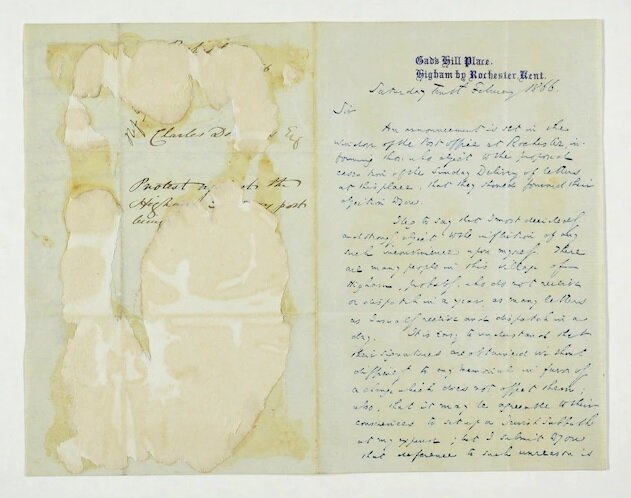 Charles D
Protest against the
Higham post
being
Gad's Hill Place.
Higham by Rochester, Kent.
Saturday Tenth February 1866
Sir
An announcement is set in the
window of the Post office at Rochester in-
forming those who object to the proposed
cessation of the Sunday Delivery of letters
at this place, that they should forward their
objection to you.
I beg to say that I most decidedly
and strongly object to the infliction of any
such inconvenience upon myself. There
are many people in this village of
Higham, probably, who do not receive
or dispatch in a year, as many letters
as I usually receive and dispatch in a
day. It is easy to understand that
their signatures are obtained without
difficulty to any memorial in favor of
a change which does not affect them;
also, that it may be agreeable to their
consciences to set up a Jewish Sabbath
at my expense; but I submit to you
that deference to such unreason is